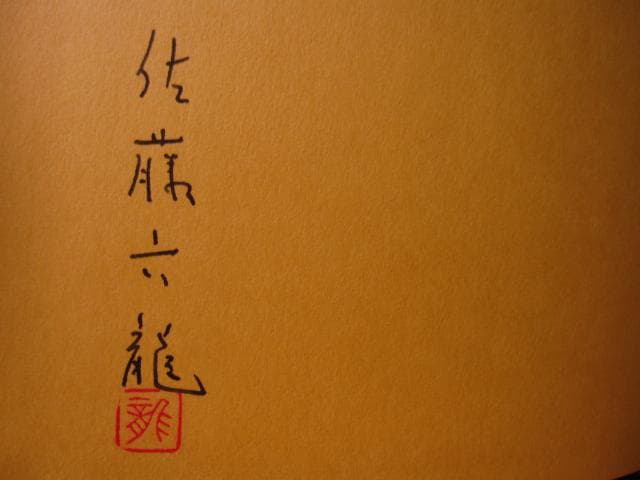 佐藤六龍